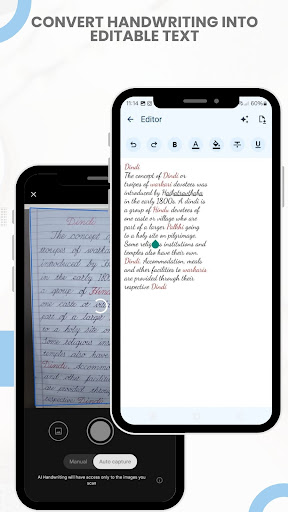 CONVERT HANDWRITING INTO
EDITABLE TEXT
11:14
60%
Editor
B U S
Dindi
The concept of Dindi or
troipes of warkari devotees was
introduced by Haibatravbaba
in the early 1800s. A dindi is
a group of Hindu devotees of
one caste or village who are
part of a larger Palkhi going
to a holy site on pilgrimage.
Some religious institutions and
temples also have their own
Dindi. Accommodation, meals
and other facilities to warkaris
are provided through their
respective Dindi
Dindi
The concept
troipes of warka
introduced by
in the early 18
a group of Hind
one caste or
part of a larg
to a holy site
Some religious inst
temples also ha
Dindi. Accommo
and other facilitie
are provided
respective Dind
Manual
Auto capture
AI Handwriting will have access only to the images you
scan